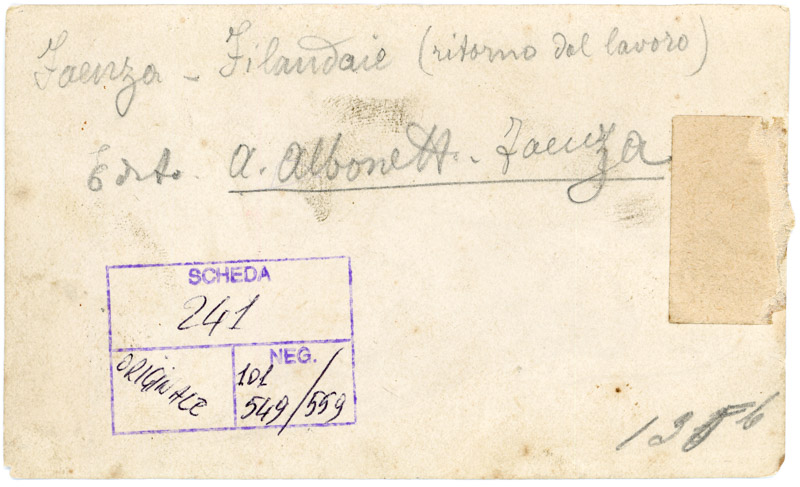 Faenza - Filandaie (ritorno dal lavoro)
Edito. A. Albonetti - Faenza
SCHEDA
241
ORIGINALE
NEG.
101
549/559